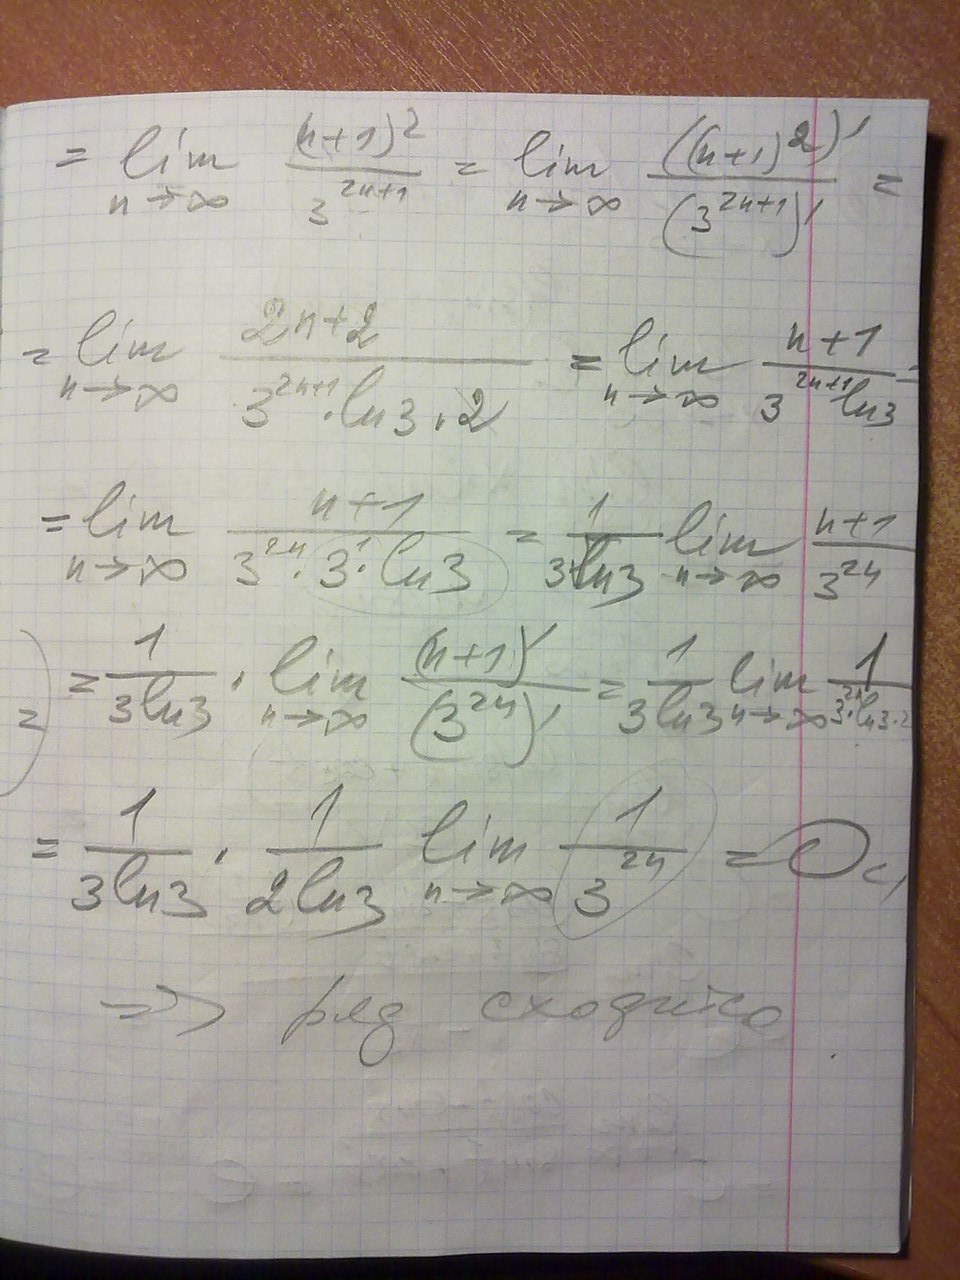 = lim n→∞ (n+1)² / 3^(2n+1) = lim n→∞ ((n+1)²)' / (3^(2n+1))' =
= lim n→∞ (2n+2) / (3^(2n+1) · ln3 · 2) = lim n→∞ (n+1) / (3^(2n+1) ln3) =
= lim n→∞ (n+1) / (3^(2n) · 3¹ · ln3) = 1 / (3 ln3) lim n→∞ (n+1) / 3^(2n)
= 1 / (3 ln3) · lim n→∞ (n+1)' / (3^(2n))' = 1 / (3 ln3) lim n→∞ 1 / (3^(2n) · ln3 · 2)
= 1 / (3 ln3) · 1 / (2 ln3) lim n→∞ 1 / 3^(2n) = 0
=> ряд сходится